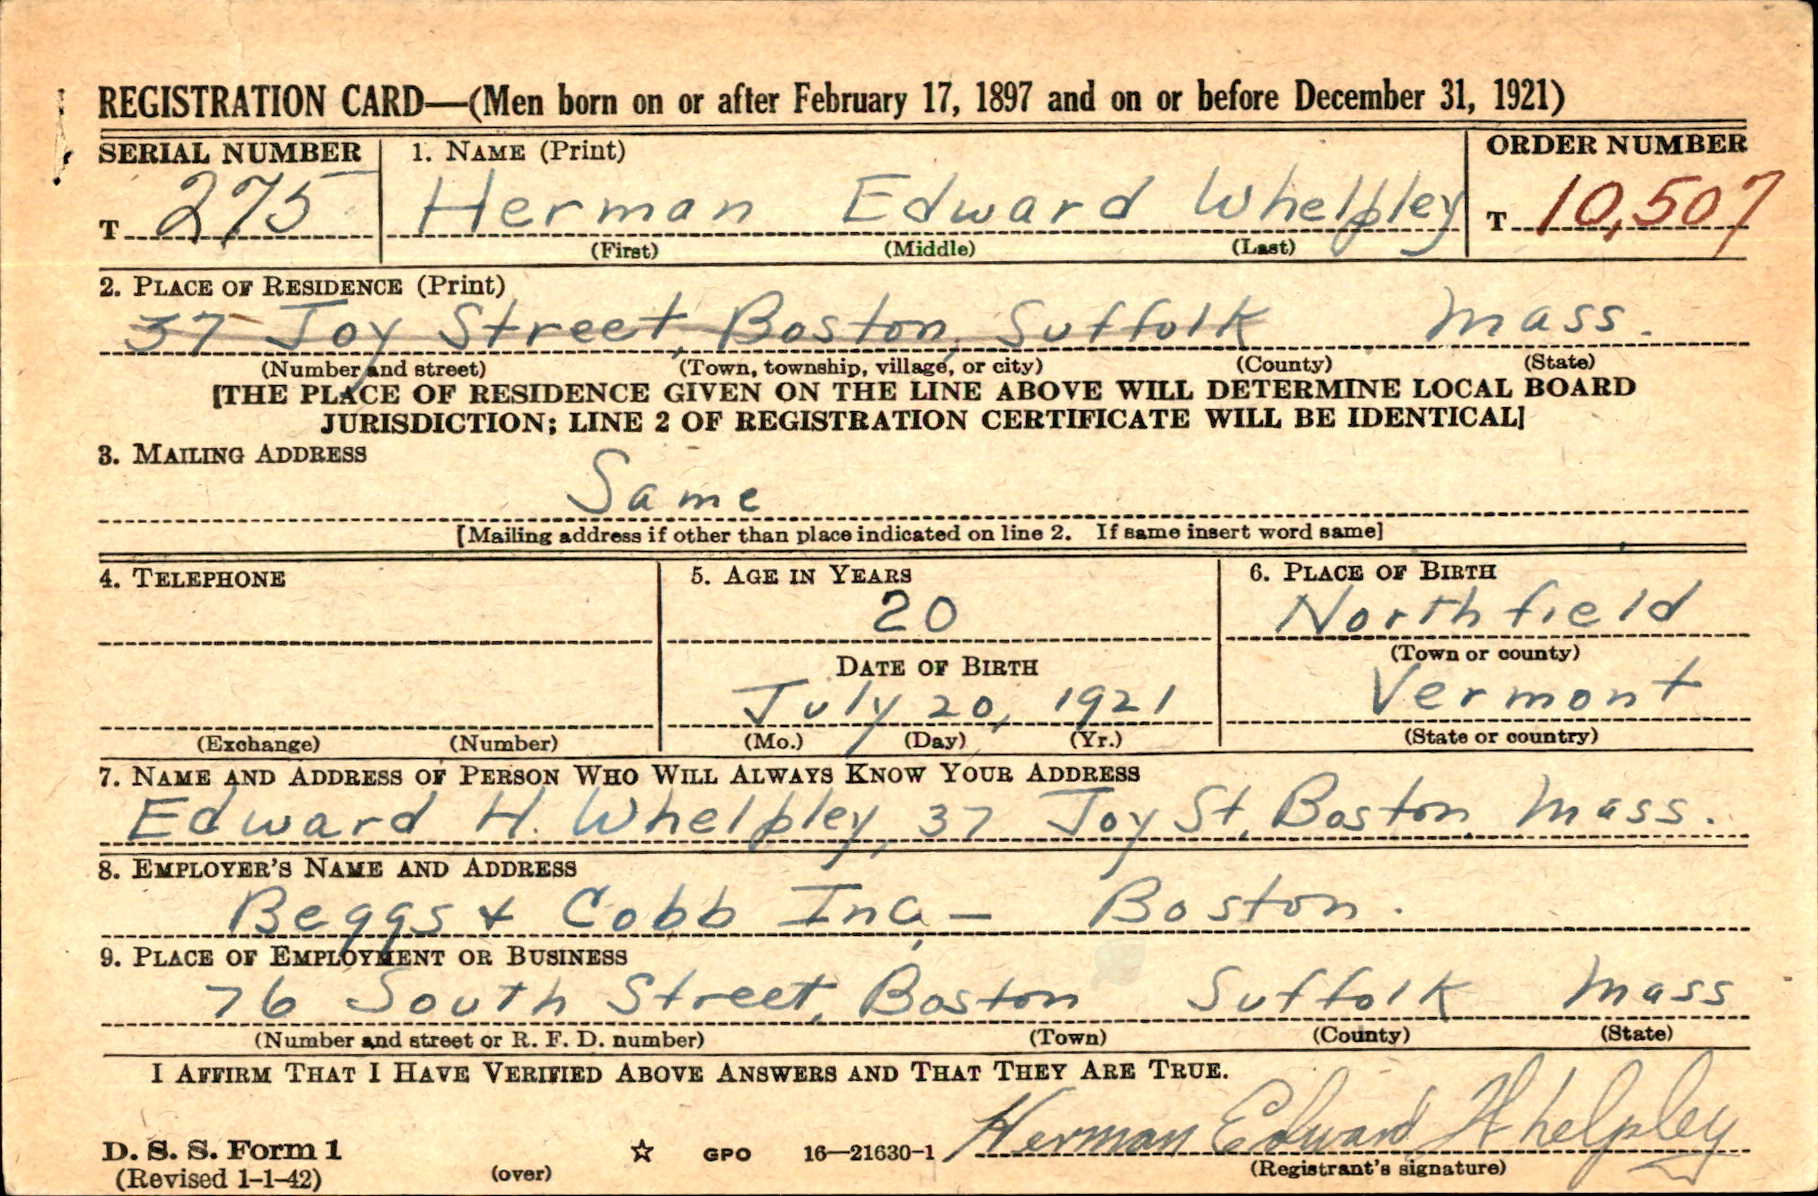 REGISTRATION CARD—(Men born on or after February 17, 1897 and on or before December 31, 1921)
SERIAL NUMBER 1. NAME (Print) ORDER NUMBER
T 275 Herman Edward Whelpley T 10,507
(First) (Middle) (Last)
2. PLACE OF RESIDENCE (Print)
37 Joy Street, Boston, Suffolk Mass.
(Number and street) (Town, township, village, or city) (County) (State)
[THE PLACE OF RESIDENCE GIVEN ON THE LINE ABOVE WILL DETERMINE LOCAL BOARD
JURISDICTION; LINE 2 OF REGISTRATION CERTIFICATE WILL BE IDENTICAL]
3. MAILING ADDRESS
Same
[Mailing address if other than place indicated on line 2. If same insert word same]
4. TELEPHONE 5. AGE IN YEARS 6. PLACE OF BIRTH
20 Northfield
DATE OF BIRTH (Town or county)
July 20, 1921 Vermont
(Exchange) (Number) (Mo.) (Day) (Yr.) (State or country)
7. NAME AND ADDRESS OF PERSON WHO WILL ALWAYS KNOW YOUR ADDRESS
Edward H. Whelpley, 37 Joy St, Boston, Mass.
8. EMPLOYER'S NAME AND ADDRESS
Beggs & Cobb Inc, — Boston.
9. PLACE OF EMPLOYMENT OR BUSINESS
76 South Street, Boston Suffolk Mass
(Number and street or R. F. D. number) (Town) (County) (State)
I AFFIRM THAT I HAVE VERIFIED ABOVE ANSWERS AND THAT THEY ARE TRUE.
D. S. S. Form 1 ☆ GPO 16—21630-1 Herman Edward Whelpley
(Revised 1-1-42) (over) (Registrant's signature)